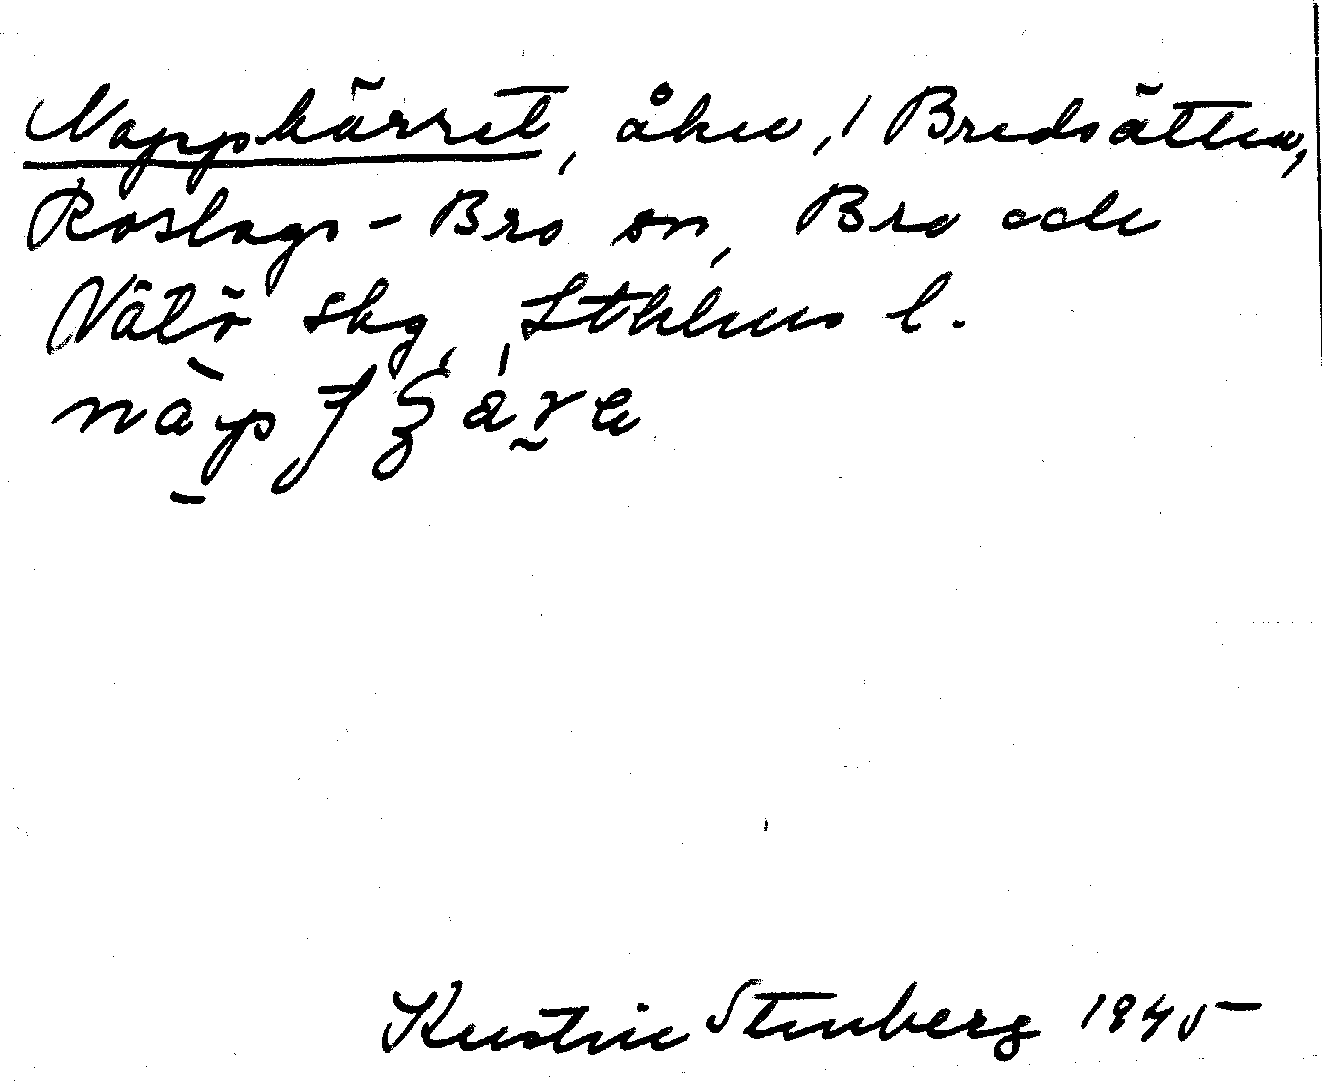 Nappkärret, åker, / Bredsätten,
Roslags-Bro sn, Bro och
Vätö skg, Sthlms l.
Kerstin Stenberg 1945